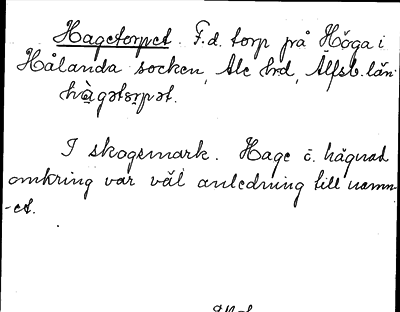 Hagetorpet. F.d. torp på Höga i
Hålanda socken, Ale hrd, Älfsb. län
hàgətɷrpət.
I skogsmark. Hage ɔ: hägnad
omkring var väl anledning till namn-
-et.